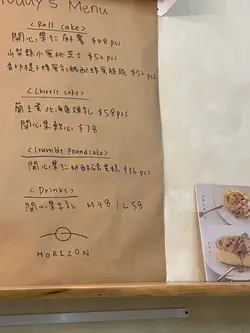 Today's Menu
<Roll cake>
開心果仁麻薯 $48 pcs
山梨縣水蜜桃芝士 $52 pcs
$52 pcs
<Cheese cake>
北海道煉乳 $58 pcs
開心果軟心 $78
<Crumble Poundcake>
開心果仁 $36 pcs
<Drinks>
開心果牛乳 M 48 | L 58
HORIZON